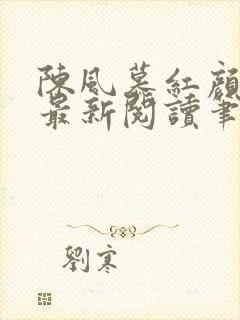 陳風慕紅顏
最新閱讀筆
劉寒